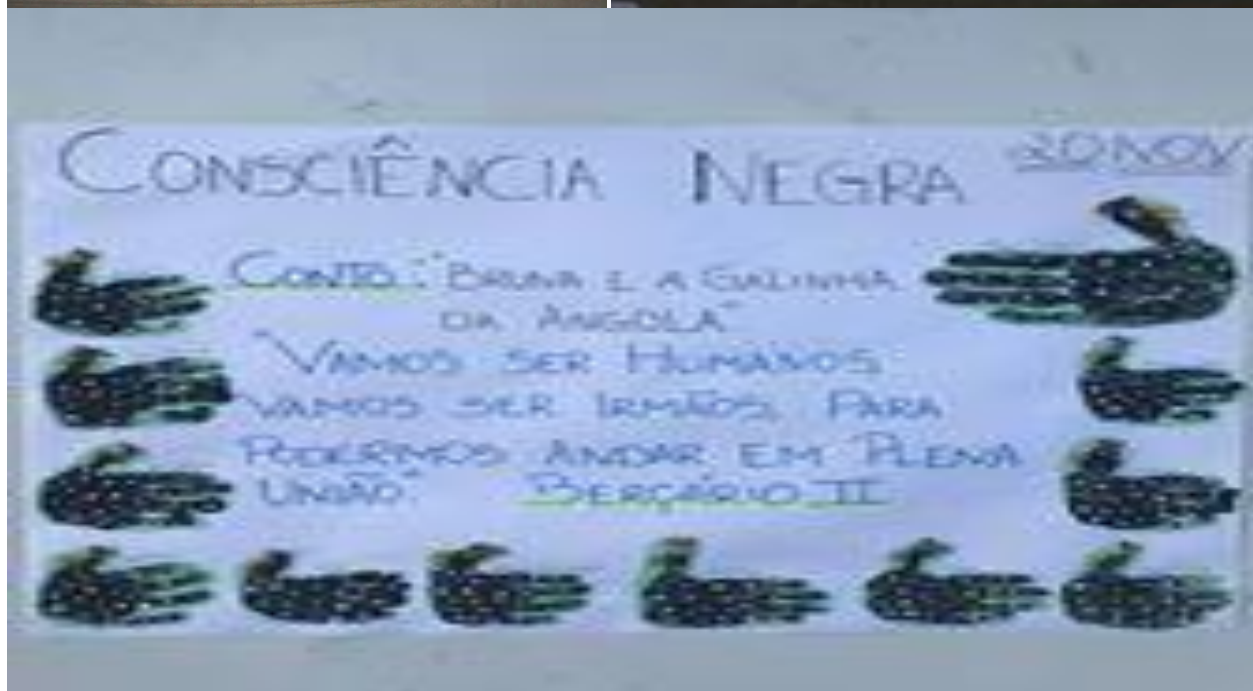 CONSCIÊNCIA NEGRA 20 NOV
CONTO: "BRUNA E A GALINHA
DA ANGOLA"
"VAMOS SER HUMANOS
VAMOS SER IRMÃOS, PARA
PODERMOS ANDAR EM PLENA
UNIÃO." BERÇÁRIO II